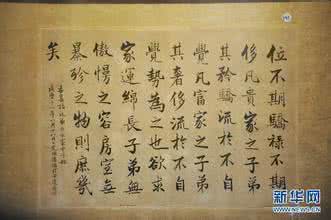 位不期驕祿不期
侈凡貴家之子弟
其矜驕流於不自
覺凡富家之子弟
其奢侈流於不自
覺勢為之也欲求
家運綿長子弟無
傲慢之容房室無
暴殄之物則庶幾
矣
新华网